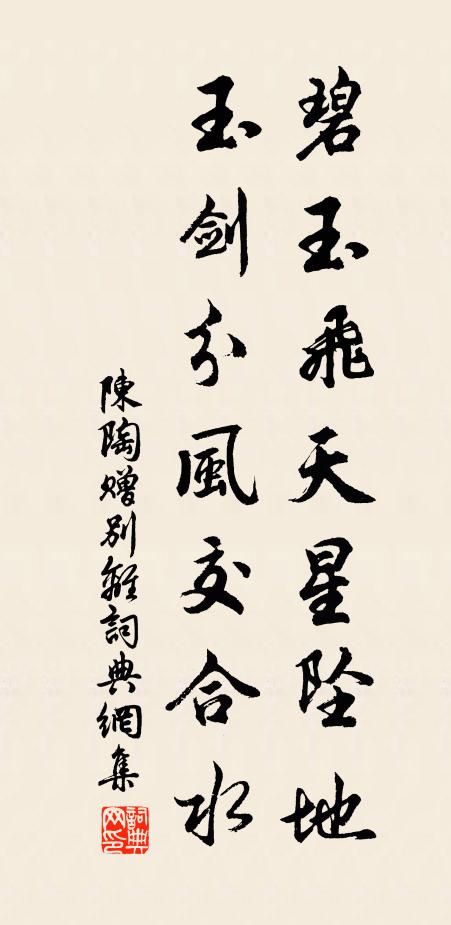 碧玉飛天星墜地
玉劍分風交合水
陳陶贈別離詞典網集
詞典網印